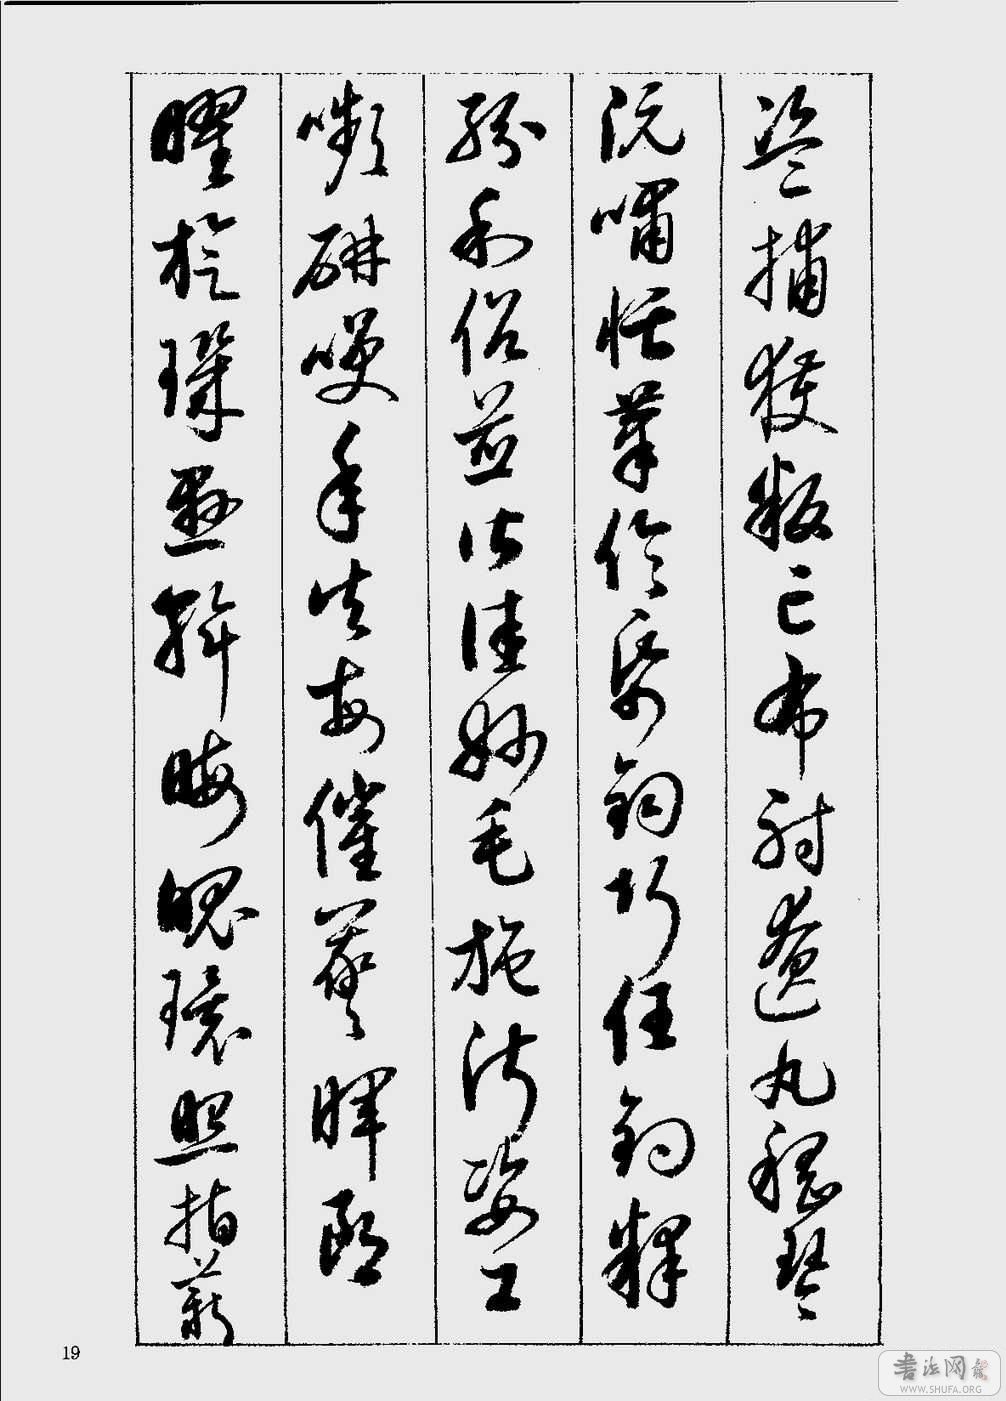 盜捕獲叛亡布射遼丸嵇琴
阮嘯恬筆倫帋鈞巧任釣釋
紛利俗並皆佳妙毛施淑姿工
嚬妍咲年矢每催羲暉朗
曜旋璣懸斡晦魄環照指薪
19
書法网
WWW.SHUFA.ORG